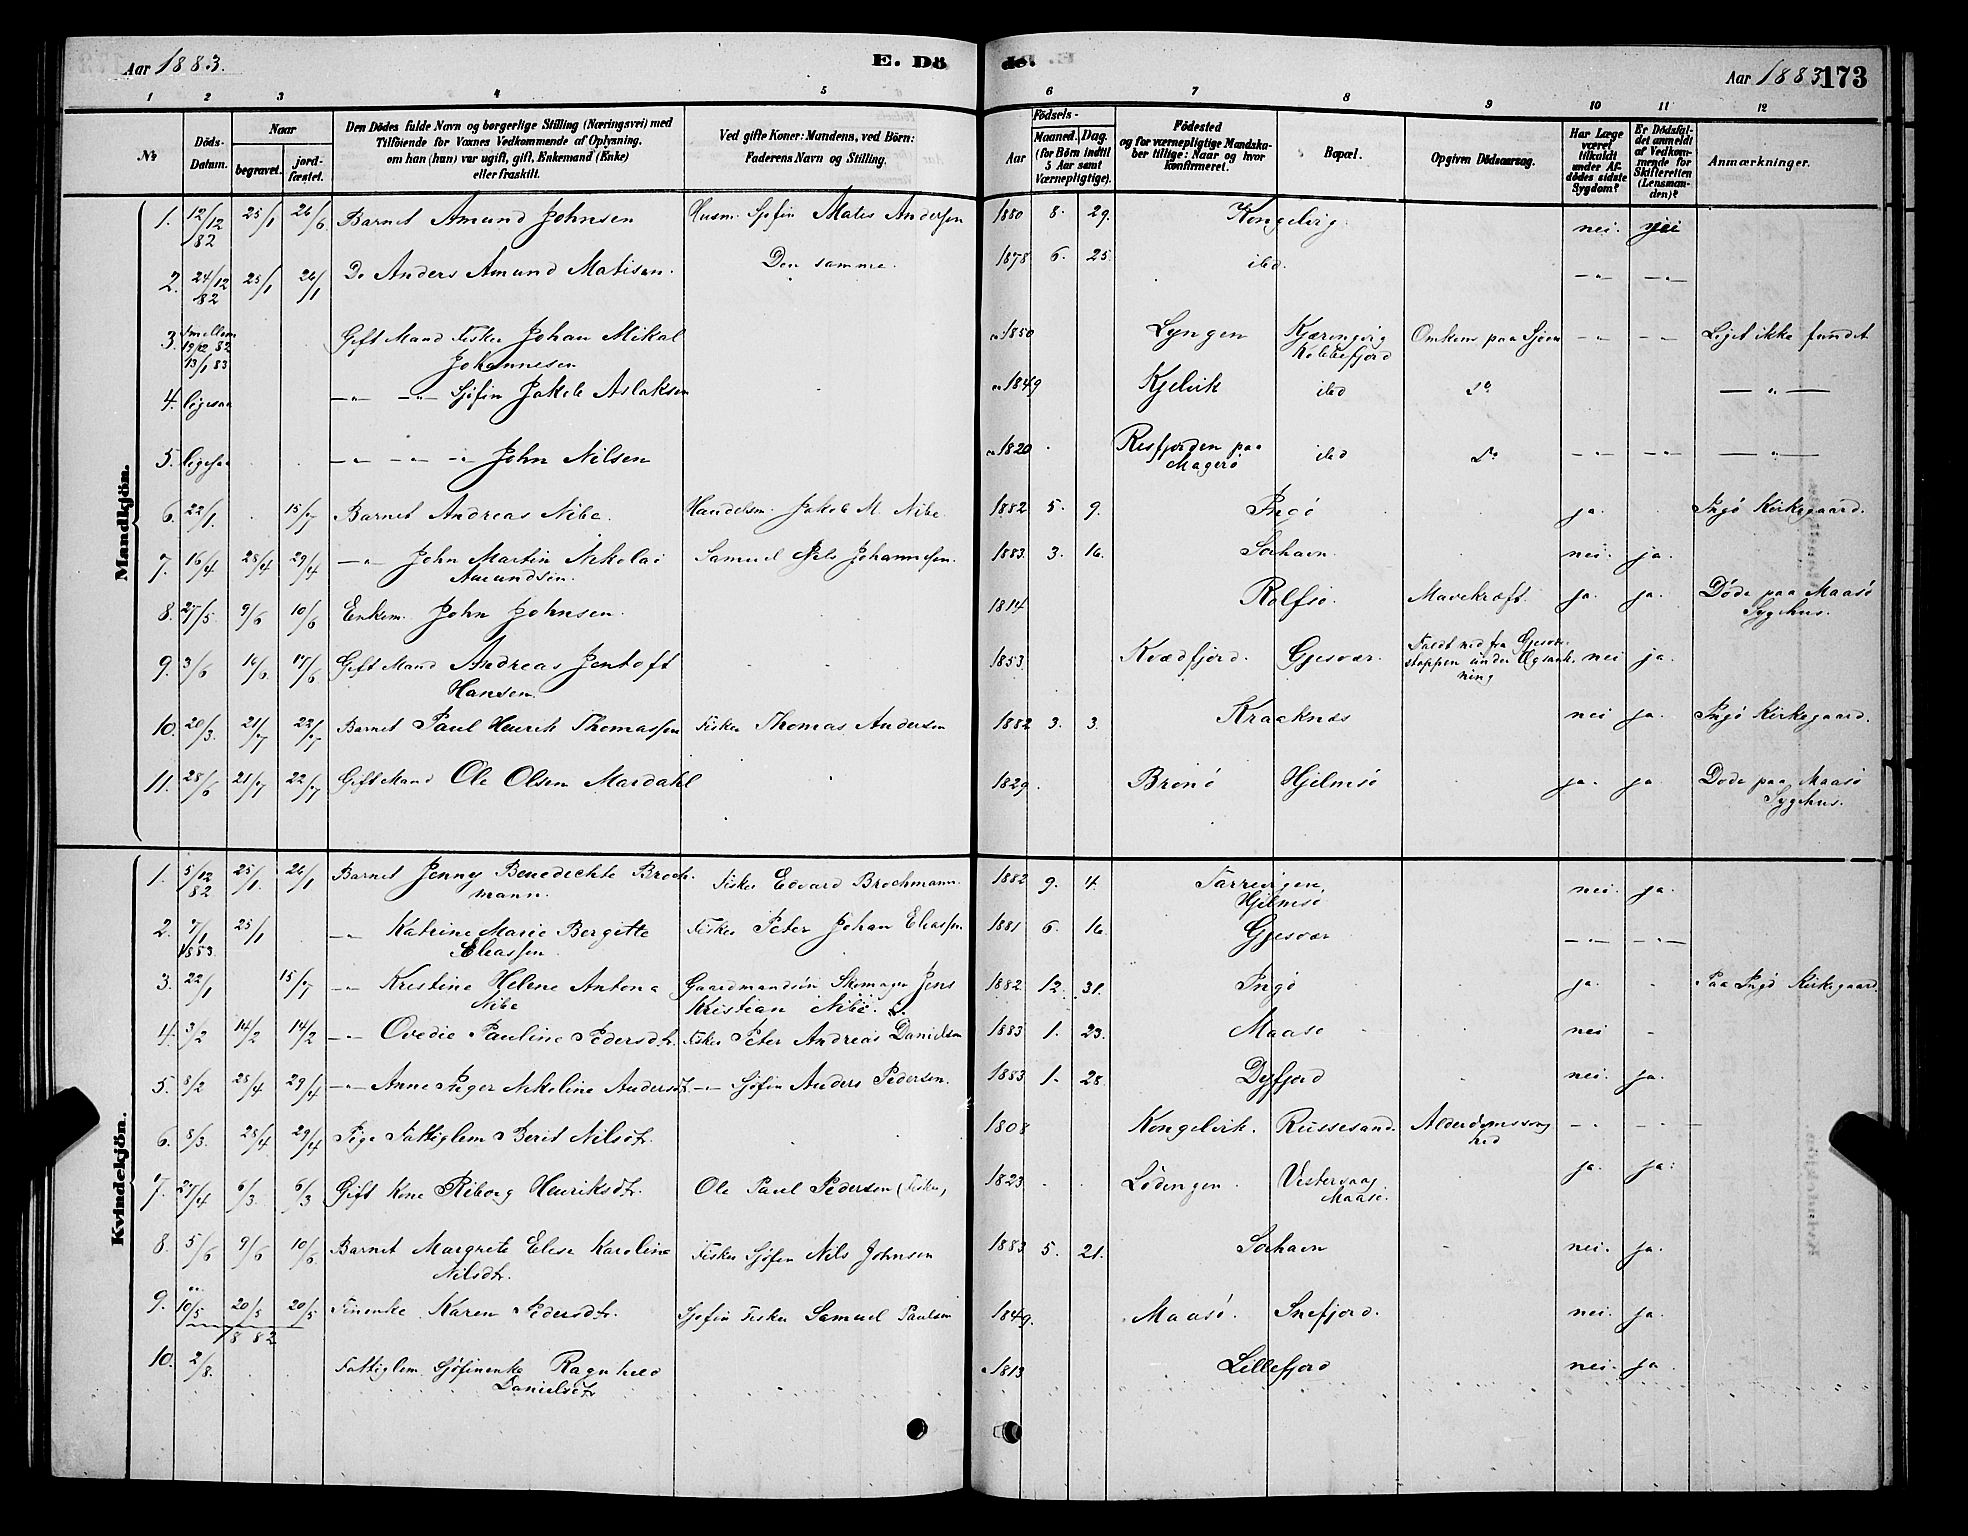 Aar 1883. E. Dö de. Aar 1883 173
1 2 3 4 5 6 7 8 9 10 11 12
No. Döds-Datum. Naar begravet. jord-fæstet. Den Dödes fulde Navn og borgerlige Stilling (Næringsvei) med Tilföiende for Voxnes Vedkommende af Oplysning, om han (hun) var ugift, gift, Enkemand (Enke) eller fraskilt. Ved gifte Koner: Mandens, ved Börn: Faderens Navn og Stilling. Födsels- Aar Maaned. Dag. (for Börn indtil 5 Aar samt Værnepligtige). Födested og for værnepligtige Mandskaber tillige: Naar og hvor konfirmeret. Bopæl. Opgiven Dödsaarsag. Har Læge været tilkaldt under Afdödes sidste Sygdom? Er Dödsfaldet anmeldt af Vedkommende for Skifteretten (Lensmanden)? Anmærkninger.
Mandkjön.
1. 12/12 82 25/1 26/6 Barnet Amund Johnsen Husm. Sjöfin Matis Andersen 1880 8. 29. Kongelvig. nei. nei
2. 24/12 82 25/1 26/1 Do Anders Amund Matisen. Den samme. 1878 6. 25. ibd. -"- -"-
3. Imellem 19/12 82 13/1 83 Gift Mand Fisker Johan Mikal Johannesen 1850 Lyngen Kjæringvig Kobbefjord Omkom paa Sjöen -"- -"- Liget ikke fundet
4. ligesaa -"- -"- Sjöfin Jakob Aslaksen 1849 Kjelvik ibd Do -"-
5. ligesaa -"- -"- -"- John Nilsen 1820 Risfjorden paa Magerö ibd Do -"- -"- -"-
6. 22/1. 15/7 Barnet Andreas Nibe. Handelsm. Jakob M. Nibe 1882 5. 9. Ingö ja. Ingö Kirkegaard.
7. 16/4 28/4 29/4 -"- John Martin Nikolai Amundsen. Samuel Nils Johannesen. 1883. 3. 16. Sorhavn. nei. ja.
8. 27/5 9/6 10/6 Enkem. John Johnsen. 1814 Rolfsö. Mavekræft. ja. ja. Döde paa Maasö Sygehus.
9. 3/6 16/6. 17/6 Gift Mand Andreas Jentoft Hansen. 1853. Kvædfjord. Gjesvær. Faldt ned fra Gjesvær-stappen under Ægsankning nei ja.
10. 20/3. 21/7 22/7 Barnet Paul Henrik Thomassen Fisker Thomas Andersen 1882 3. 3. Kraaknæs nei ja. Ingö Kirkegaard.
11. 28/6 21/7 22/7 Gift Mand Ole Olsen Mardahl 1829. Brönö Hjelmsö ja. ja Döde paa Maasö Sygehus.
Kvindekjön.
1. 5/12 82 25/1. 26/1 Barnet Jenny Benedichte Broch-mann. Fisker Edvard Brochmann. 1882 9. 4. Tarrevigen, Hjelmsö nei. ja.
2. 7/1 1883 25/1 -"- Katrine Marie Bergitte Eliassen. Fisker Peter Johan Eliassen 1881 6. 16. Gjesvær -"- -"-
3. 22/1 15/7 -"- Kristine Helene Antona Nibe Gaardmandsön Skomager Jens Kristian Nibe. 1882 12. 31. Ingö ja. Paa Ingö Kirkegaard.
4. 3/2 14/2 14/2 -"- Ovedie Pauline Pedersdtr. Fisker Peter Andreas Danielsen 1883 1. 23. Maasö nei
5. 8/2 28/4 29/4 -"- Anne Inger Nikoline Andersdtr. -"- Sjöfin Anders Pedersen. 1883 1. 28. Dyfjord nei. ja.
6. 8/3. 28/4. 29/4 Pige Fattiglem Berit Nilsdtr. 1808 Kongelvik. Russesand. Alderdomssvaghed -"- -"-
7. 27/4 6/3 6/3 Gift Kone Riborg Henriksdtr. Ole Paul Pedersen (Fisker) 1823 Lödingen. Vestervaag Maasö. ja. ja.
8. 5/6 9/6 10/6 Barnet Margrete Elise Karoline Nilsdtr. Fisker Sjöfin Nils Johnsen 1883 5. 21. Sorhavn nei. ja.
9. 10/5 20/5 20/5 1882 Finenke Karen Pedersdtr. Sjöfin Fisker Samuel Paulsen 1849. Maasö. Snefjord. nei. ja.
10. 2/8. Fattiglem Sjöfinenke Ragnhild Danielsdtr 1813 Lillefjord nei. ja